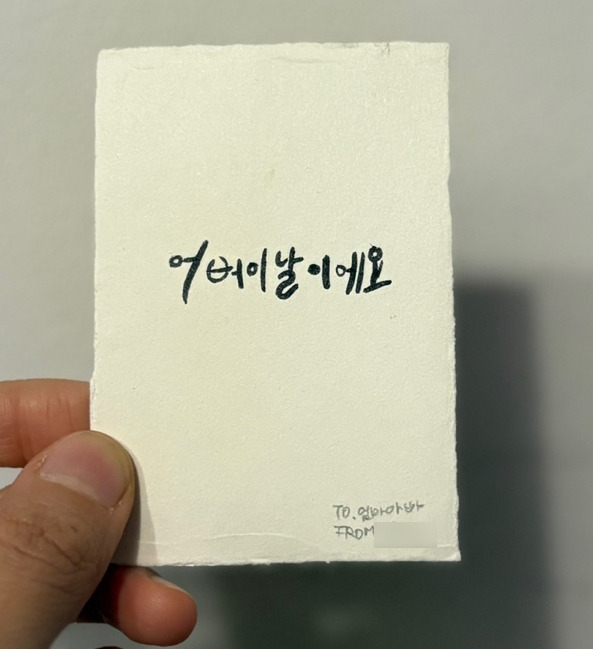 어버이날이에요
TO. 엄마아빠
FROM